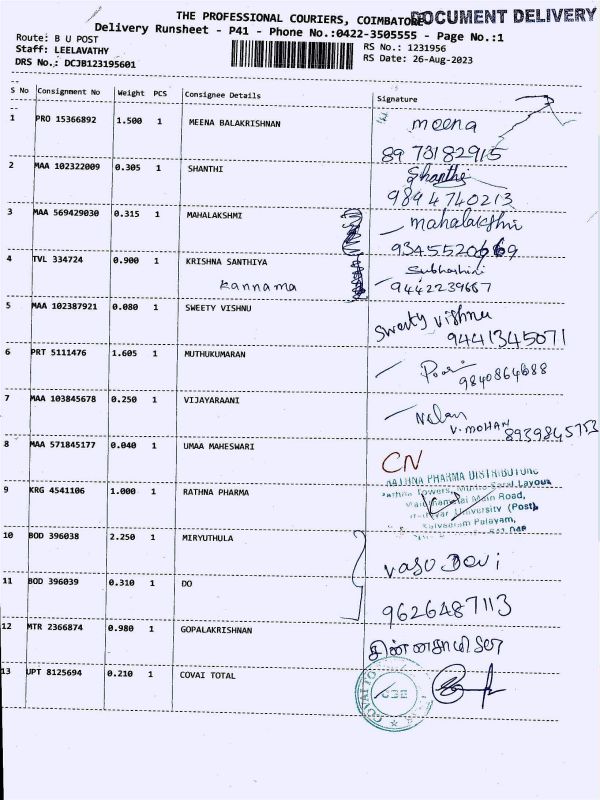 THE PROFESSIONAL COURIERS, COIMBATORE
DOCUMENT DELIVERY
Delivery Runsheet - P41 - Phone No.:0422-3505555 - Page No.:1
Route: B U POST
Staff: LEELAVATHY
DRS No.: DCJB123195601
RS No.: 1231956
RS Date: 26-Aug-2023
S No Consignment No Weight PCS Consignee Details Signature
1 PRO 15366892 1.500 1 MEENA BALAKRISHNAN meena
89 73182915
2 MAA 102322009 0.305 1 SHANTHI Shanthi
9894740213
3 MAA 569429030 0.315 1 MAHALAKSHMI mahalakshmi
9345520669
4 TVL 334724 0.900 1 KRISHNA SANTHIYA Subhashini
kannama 9442239667
5 MAA 102387921 0.080 1 SWEETY VISHNU Sweety vishnu
9441345071
6 PRT 5111476 1.605 1 MUTHUKUMARAN
9840864688
7 MAA 103845678 0.250 1 VIJAYARAANI
V. MOHAN
8939845753
8 MAA 571845177 0.040 1 UMAA MAHESWARI CN
9 KRG 4541106 1.000 1 RATHNA PHARMA RATHNA PHARMA DISTRIBUTORS
Rathna Towers, Layout
Main Road,
University (Post),
Kalveeram Palayam,
10 BOD 396038 2.250 1 MIRYUTHULA Vasu Devi
11 BOD 396039 0.310 1 DO 9626487113
12 MTR 2366874 0.980 1 GOPALAKRISHNAN
13 UPT 8125694 0.210 1 COVAI TOTAL COVAI TO
CBE